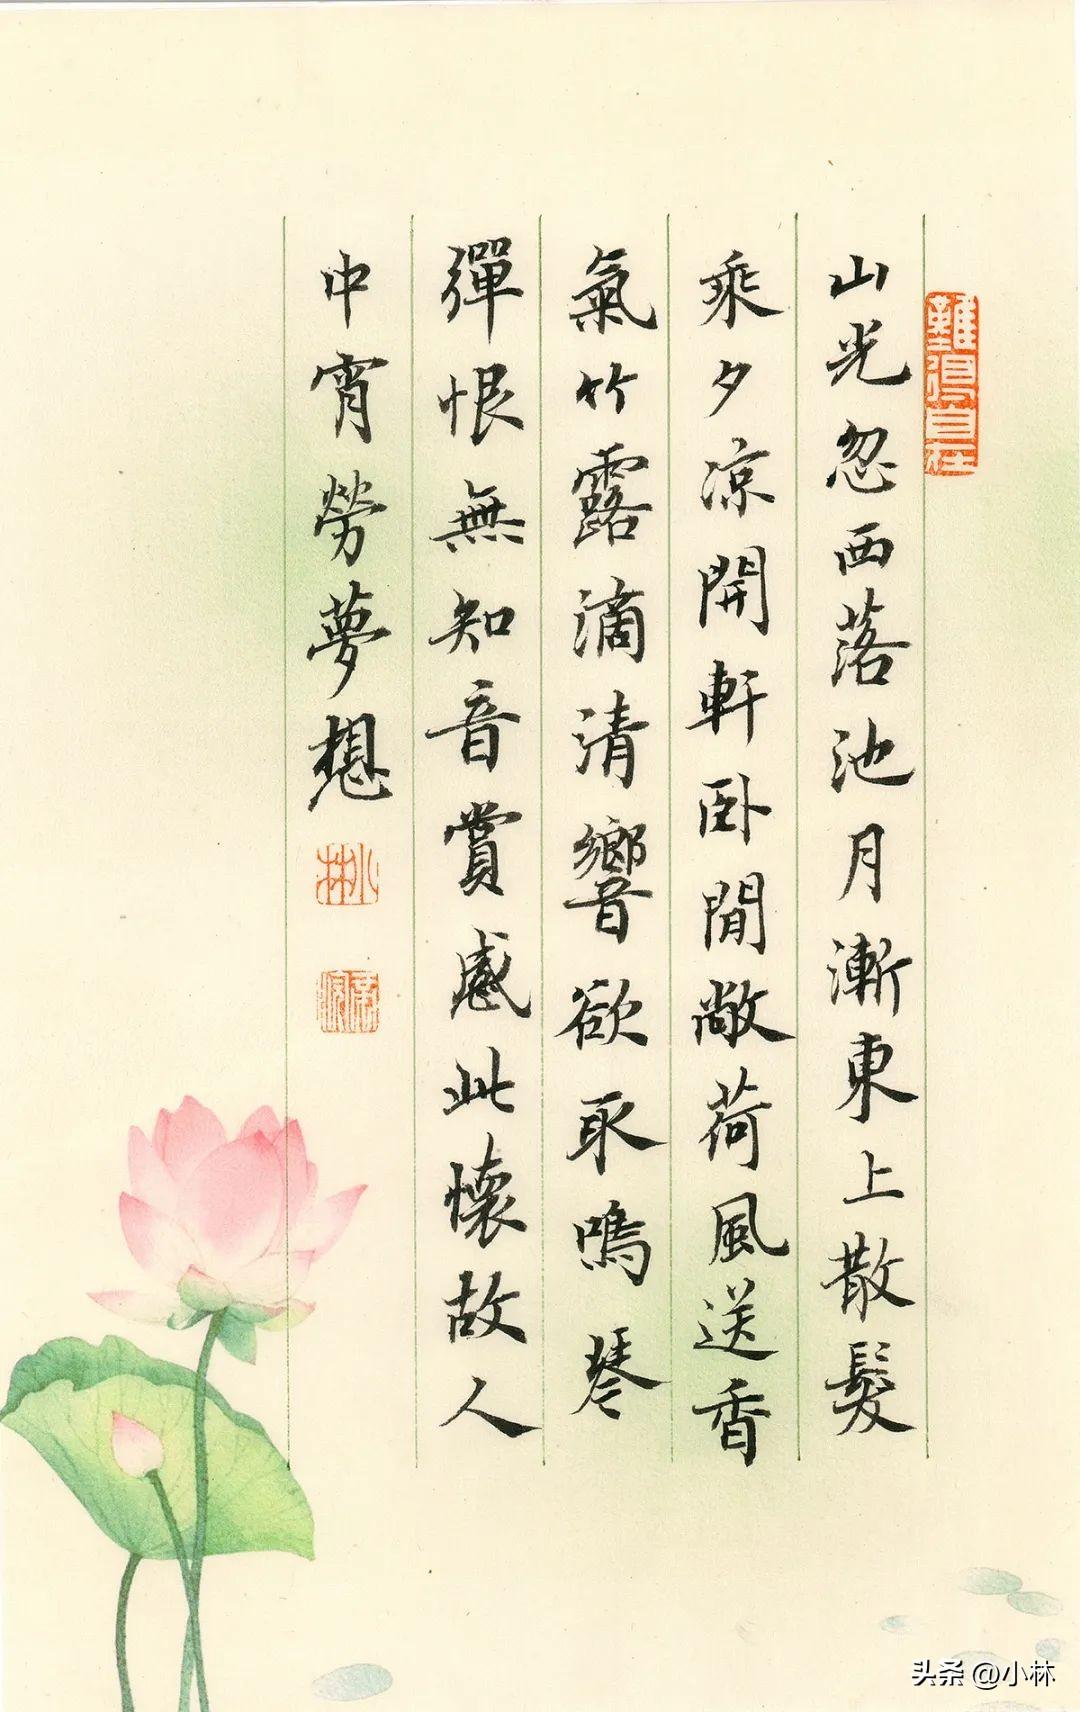 難得自在
山光忽西落池月漸東上散髮
乘夕凉開軒卧閒敞荷風送香
氣竹露滴清響欲取鳴琴
彈恨無知音賞感此懷故人
中宵勞夢想
小林
头条 @小林